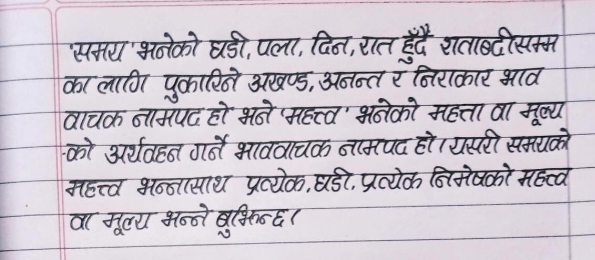 'समय' भनेको घडी, पला, दिन, रात हुँदै शताब्दीसम्म
का लागि पुकारिने अखण्ड, अनन्त र निराकार भाव
वाचक नामपद हो भने 'महत्त्व' भनेको महत्ता वा मूल्य
-को अर्थवहन गर्ने भाववाचक नामपद हो । यसरी समयको
महत्त्व भन्नासाथ प्रत्येक, घडी, प्रत्येक निमेषको महत्त्व
वा मूल्य भन्ने बुझिन्छ ।